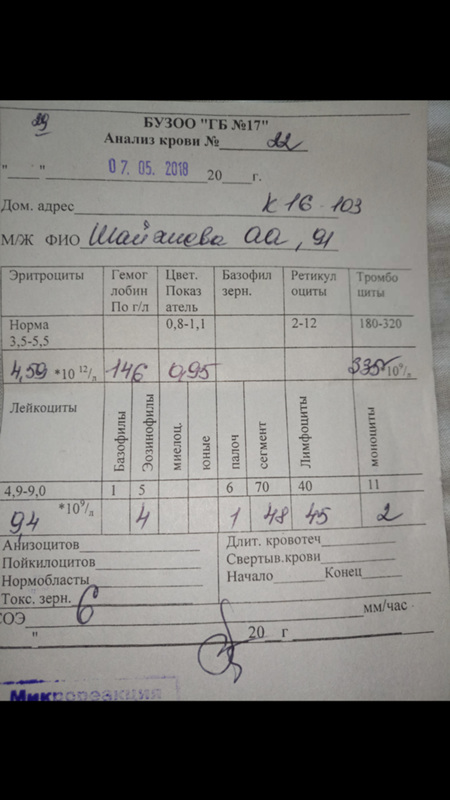 29
БУЗОО "ГБ №17"
Анализ крови № 22
"___" ___ 07. 05. 2018 20___г.
Дом. адрес К 16-103
М/Ж ФИО АА, 91
Эритроциты Гемог лобин По г/л Цвет. Показ атель Базофил зерн. Ретикул оциты Тромбо циты
Норма 3,5-5,5 0,8-1,1 2-12 180-320
4,59 *10 12/л 146 0,95 335 10 9/л
Лейкоциты Базофилы Эозинофилы миелоц. юные палоч сегмент Лимфоциты моноциты
4,9-9,0 1 5 6 70 40 11
9,4 *10 9/л 4 1 48 45 2
Анизоцитов Длит. кровотеч
Пойкилоцитов Свертыв.крови
Нормобласты Начало Конец
Токс. зерн.
СОЭ 6 мм/час
" 20 г
Микрореакция